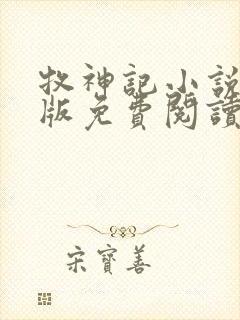 牧神記小說
版免費閱讀
宋寶善